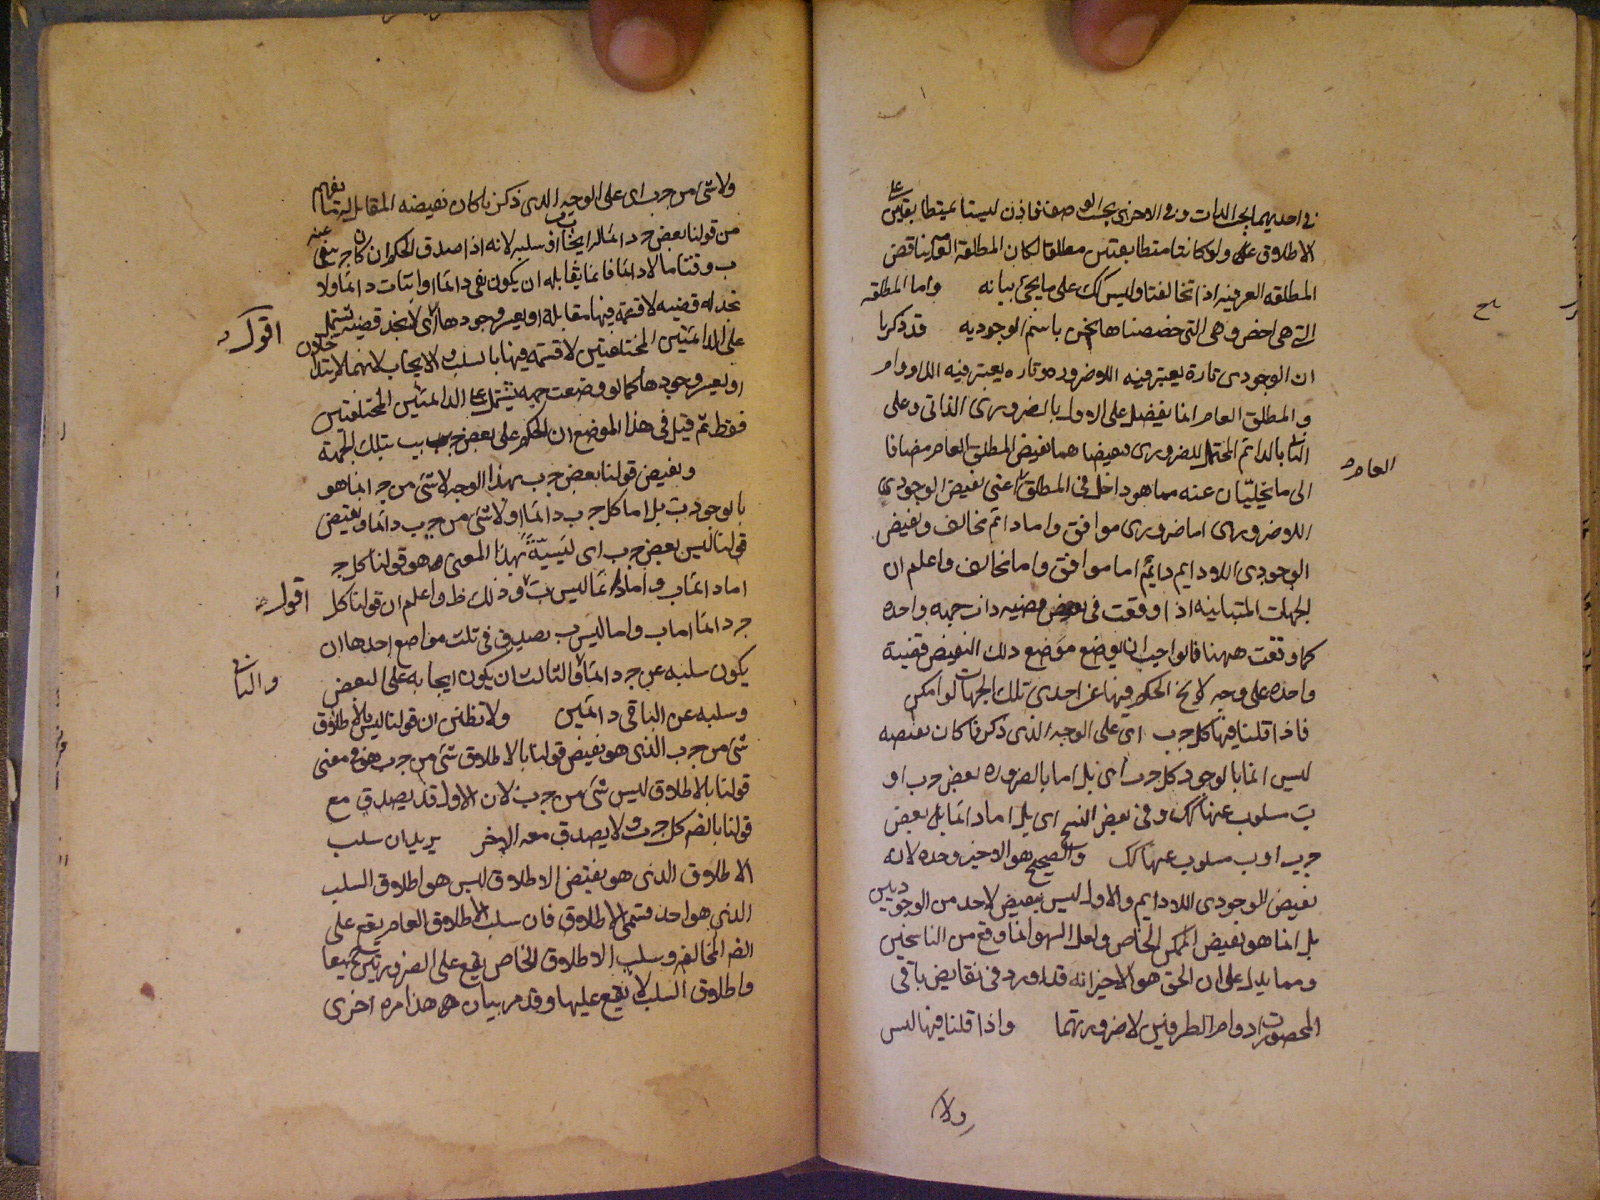 في احديهما بحسب الذات وفي الاخرى بحسب الوصف فاذن ليستا بمتطابقتين
الاطلاق على ولو كانتا متطابقتين مطلقا لكان المطلقة العامة يناقض
المطلقه العرفيه اذا تخالفتا وليس كك على ما يجئ بيانه واما المطلقه
التي هي اخص وهي التي خصصناها نحن باسم الوجوديه قد ذكرنا
ان الوجودى تارة يعتبر فيه اللاضروره وتاره يعتبر فيه اللادوام
والمطلق العام انما يفضل على الاول بالضرورى الذاتى وعلى
الثانى بالدائم المحتمل للضرورى فنقيضاهما نقيض المطلق العام مضافا
العام
الى ما يخليان عنه مما هو داخل فى المطلق اعنى نقيض الوجودى
اللاضرورى اما ضرورى موافق واما دائم مخالف ونقيض
الوجودى اللادايم دايم اما موافق واما مخالف واعلم ان
الجهات المتباينه اذا وقعت فى نقيض قضيه ذات جهه واحده
كما وقعت ههنا فالواجب ان يوضع موضع ذلك النقيض قضية
واحده على وجه لا يخ الحكم فيها عن احدى تلك الجهات لو امكن
فاذا قلنا فيها كل ج ب اى على الوجه الذى ذكرنا كان نقيضه
ليس انما بالوجود كل ج ب اى بل اما بالضروره بعض ج ب او
ب مسلوب عنها كك وفى بعض النسخ اى بل اما دائما بل بعض
ج ب او ب مسلوب عنها كك والصحيح هو الاخير وحده لانه
نقيض الوجودى اللادايم والاول ليس بنقيض لاحد من الوجوديين
بل انما هو نقيض الممكن الخاص ولعل السهو انما وقع من الناسخين
ومما يدل على ان الحق هو الاخير انه قد اورد فى نقايض باقى
المحصورات دوام الطرفين لا ضرورتهما واذا قلنا فيها ليس
ولا
ولا شئ من ج ب اى على الوجه الذى ذكرنا كان نقيضه المقابل له ما يفهم
من قولنا بعض ج دائما له ايجاب ب او سلبه لانه اذا صدق الحكم ان كل ج ينفى عنه
ب وقتا ما لا دائما فانما يقابله ان يكون نفى دائما او اثبات دائما ولا
نجد له قضيه لا قسمة فيها مقابلة او يعسر وجودها اى لا نجد قضيه تشتمل
اقول
على الدائمتين المختلفتين لا قسمه فيها بالسلب والايجاب لانهما لا يتداخلان
او يعسر وجودها كما لو وضعت جهه تشتمل على الدائمتين المختلفتين
فقط ثم قيل فى هذا الموضع ان الحكم على بعض ج ب بتلك الجهة
ونقيض قولنا بعض ج ب بهذا الوجه لا شئ من ج انما هو
بالوجود ب بل اما كل ج ب دائما او لا شئ من ج ب دائما ونقيض
قولنا ليس بعض ج ب اى ليسية بهذا المعنى هو قولنا كل ج
اما دائما ب واما دائما ليس ب وذلك ظ واعلم ان قولنا كل
اقول
ج دائما اما ب واما ليس ب يصدق فى ثلث مواضع احدها ان
يكون سلبه عن ج دائما والثالث ان يكون ايجابه على البعض
والثانى
وسلبه عن الباقى دائمين ولا تظنن ان قولنا ليس بالاطلاق
شئ من ج ب الذى هو نقيض قولنا بالاطلاق شئ من ج ب هو فى معنى
قولنا بالاطلاق ليس شئ من ج ب لان الاول قد يصدق مع
قولنا بالضه كل ج ب ولا يصدق معه الاخر يريد ان سلب
الاطلاق الذى هو نقيض الاطلاق ليس هو اطلاق السلب
الذى هو احد قسمى الاطلاق فان سلب الاطلاق العام يقع على
الضه المخالفه وسلب الاطلاق الخاص يقع على الضروريتين جميعا
واطلاق السلب لا يقع عليها وقد مر بيان هذا مره اخرى